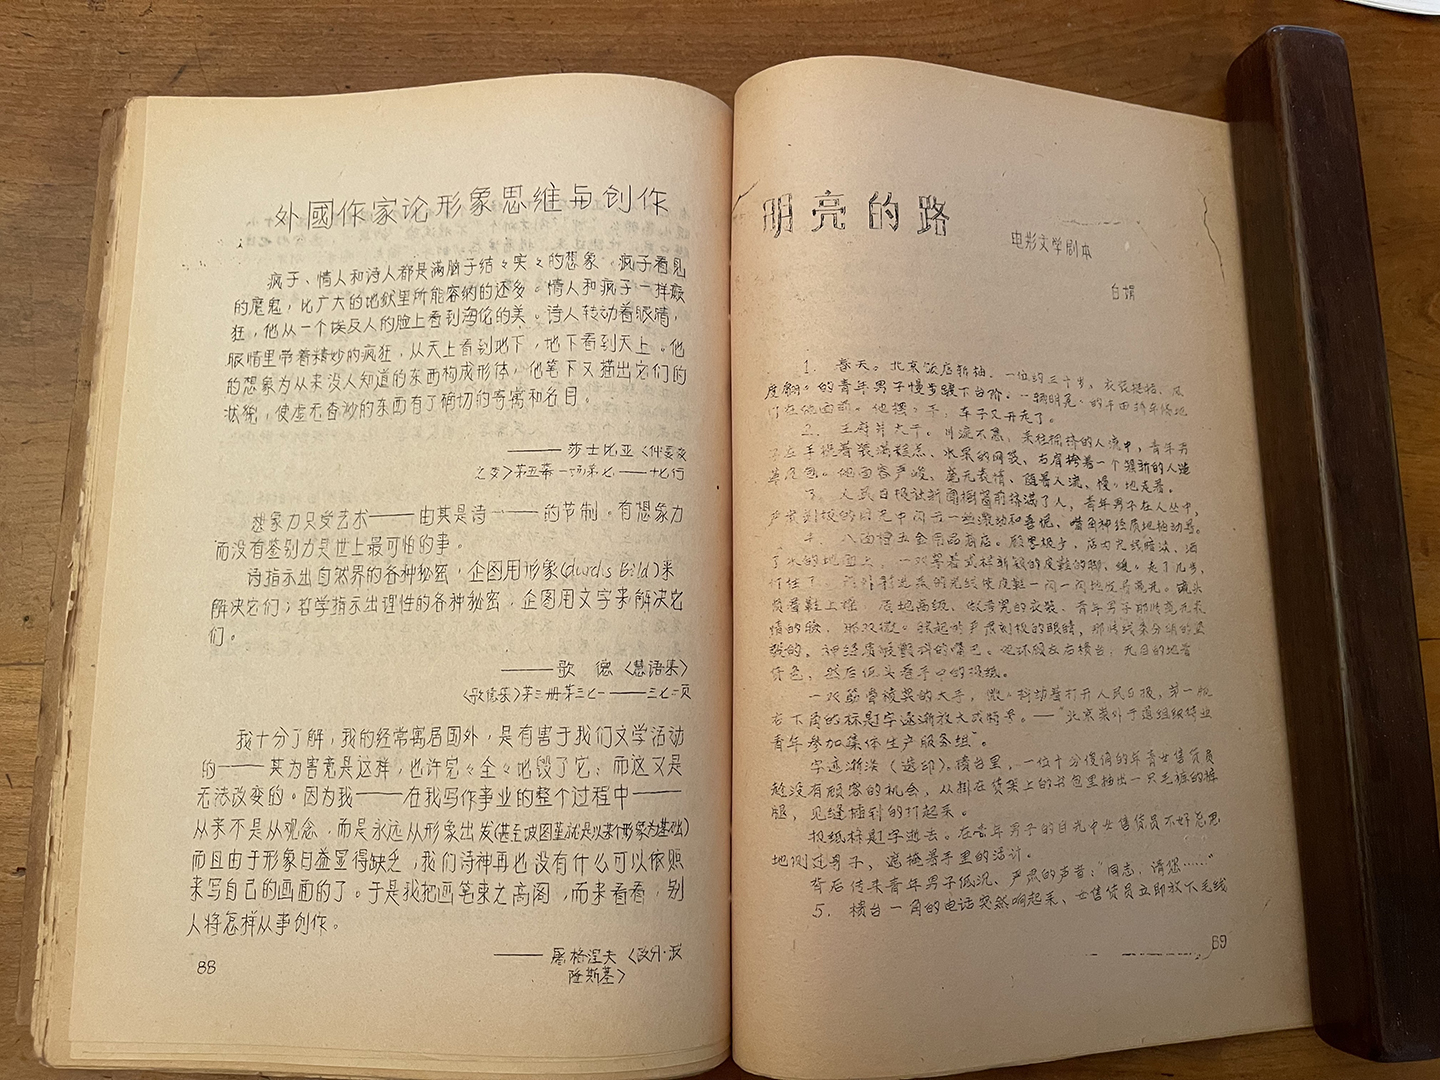 外國作家论形象思维与创作
疯子、情人和诗人都是满脑子结々实々的想象。疯子看见
的魔鬼，比广大的地狱里所能容纳的还多。情人和疯子一样癡
狂，他从一个埃及人的脸上看到海伦的美。诗人转动着眼睛，
眼睛里带着精妙的疯狂，从天上看到地下，地下看到天上。他
的想象为从来没人知道的东西构成形体，他笔下又描出它们的
状貌，使虚无杳渺的东西有了确切的寄寓和名目。
——莎士比亚〈仲夏夜
之梦〉第五幕一场第七——十七行
想象力只受艺术——由其是诗——的节制。有想象力
而没有鉴别力是世上最可怕的事。
诗指示出自然界的各种秘密，企图用形象(durdis Bild)来
解决它们；哲学指示出理性的各种秘密，企图用文字来解决它
们。
——歌 德〈慧语集〉
〈歌德集〉第三册第三七一——三七二页
我十分了解，我的经常寓居国外，是有害于我们文学活动
的——其为害竟是这样，也许完々全々地毁了它；而这又是
无法改变的。因为我——在我写作事业的整个过程中——
从来不是从观念，而是永远从形象出发(甚至波图堇就是以某个形象为基础)
而且由于形象日益显得缺乏，我们诗神再也没有什么可以依照
来写自己的画面的了。于是我把画笔束之高阁，而来看看，别
人将怎样从事创作。
——屠格涅夫〈致丹·波
隆斯基〉
88
明亮的路
电影文学剧本
白娟
1. 春天。北京饭店新楼。一位约三十岁、衣装挺括、风
度翩々的青年男子慢步踱下台阶。一辆明亮々的丰田轿车缓地
停在他面前。他摆々手，车子又开走了。
2. 王府井大干。川流不息，来往拥挤的人流中，青年男
子左手提着装满糕点、水果的网袋，右肩挎着一个簇新的人造
革皮包。他面容严峻，毫无表情，随着人流，慢々地走着。
3. 人民日报社新闻橱窗前挤满了人，青年男子在人丛中，
严肃刻板的目光中闪示一丝激动和喜悦，嘴角神经质地抽动着。
4. 八面槽五金用品商店。顾客极少，店内光线暗淡，洒
了水的地面上，一双穿着式样新颖的皮鞋的脚，缓々走了几步，
停住了。
质着鞋上推，质地高级、做考究的衣装、青年男子那付毫无表
情的脸，那双微々眯起的严肃刻板的眼睛，那付线条分明的坚
毅的，神经质般颤抖的嘴巴。他环顾左右横台，无目的地看
货色，然后低头看手中的报纸。
一双筋骨棱奕的大手，微々抖动着打开人民日报，第一版
右下角的标题字逐渐放大成特号。——“北京崇外干道组织待业
青年参加集体生产服务组”。
字迹渐淡（迭印）。横台里，一位十分俊俏的年青女售货员
趁没有顾客的机会，从掛在货架上的书包里抽出一只毛裤的裤
腿，见缝插针的打起来。
报纸标题字逝去。在青年男子的目光中女售货员不好意思
地侧过身子，遮掩着手里的活计。
背后传来青年男子低沉、严肃的声音：“同志，请您……”
5. 横台一角的电话突然响起来，女售货员立即放下毛线
89